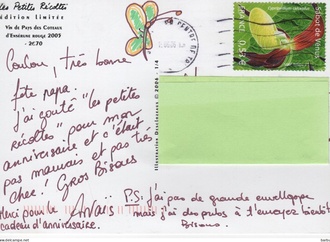 Les Petites Récoltes
édition limitée
Vin de Pays des Coteaux
d'Ensérune rouge 2005
- 2€70
Sabot de Vénus
Coucou, très bonne
fête papa.
j'ai goûté "les petites
récoltes" pour mon
anniversaire et c'était
pas mauvais et pas très
cher! Gros Bisous
Anaïs
Merci pour le
cadeau d'anniversaire.
P.S: j'ai pas de grande enveloppe
mais j'ai des photos à t'envoyer bientôt
Bisous